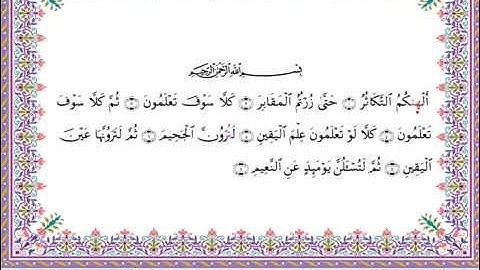 بِسْمِ اللَّهِ الرَّحْمَٰنِ الرَّحِيمِ
أَلْهَىٰكُمُ التَّكَاثُرُ ۝ حَتَّىٰ زُرْتُمُ الْمَقَابِرَ ۝ كَلَّا سَوْفَ تَعْلَمُونَ ۝ ثُمَّ كَلَّا سَوْفَ
تَعْلَمُونَ ۝ كَلَّا لَوْ تَعْلَمُونَ عِلْمَ الْيَقِينِ ۝ لَتَرَوُنَّ الْجَحِيمَ ۝ ثُمَّ لَتَرَوُنَّهَا عَيْنَ
الْيَقِينِ ۝ ثُمَّ لَتُسْـَٔلُنَّ يَوْمَئِذٍ عَنِ النَّعِيمِ ۝